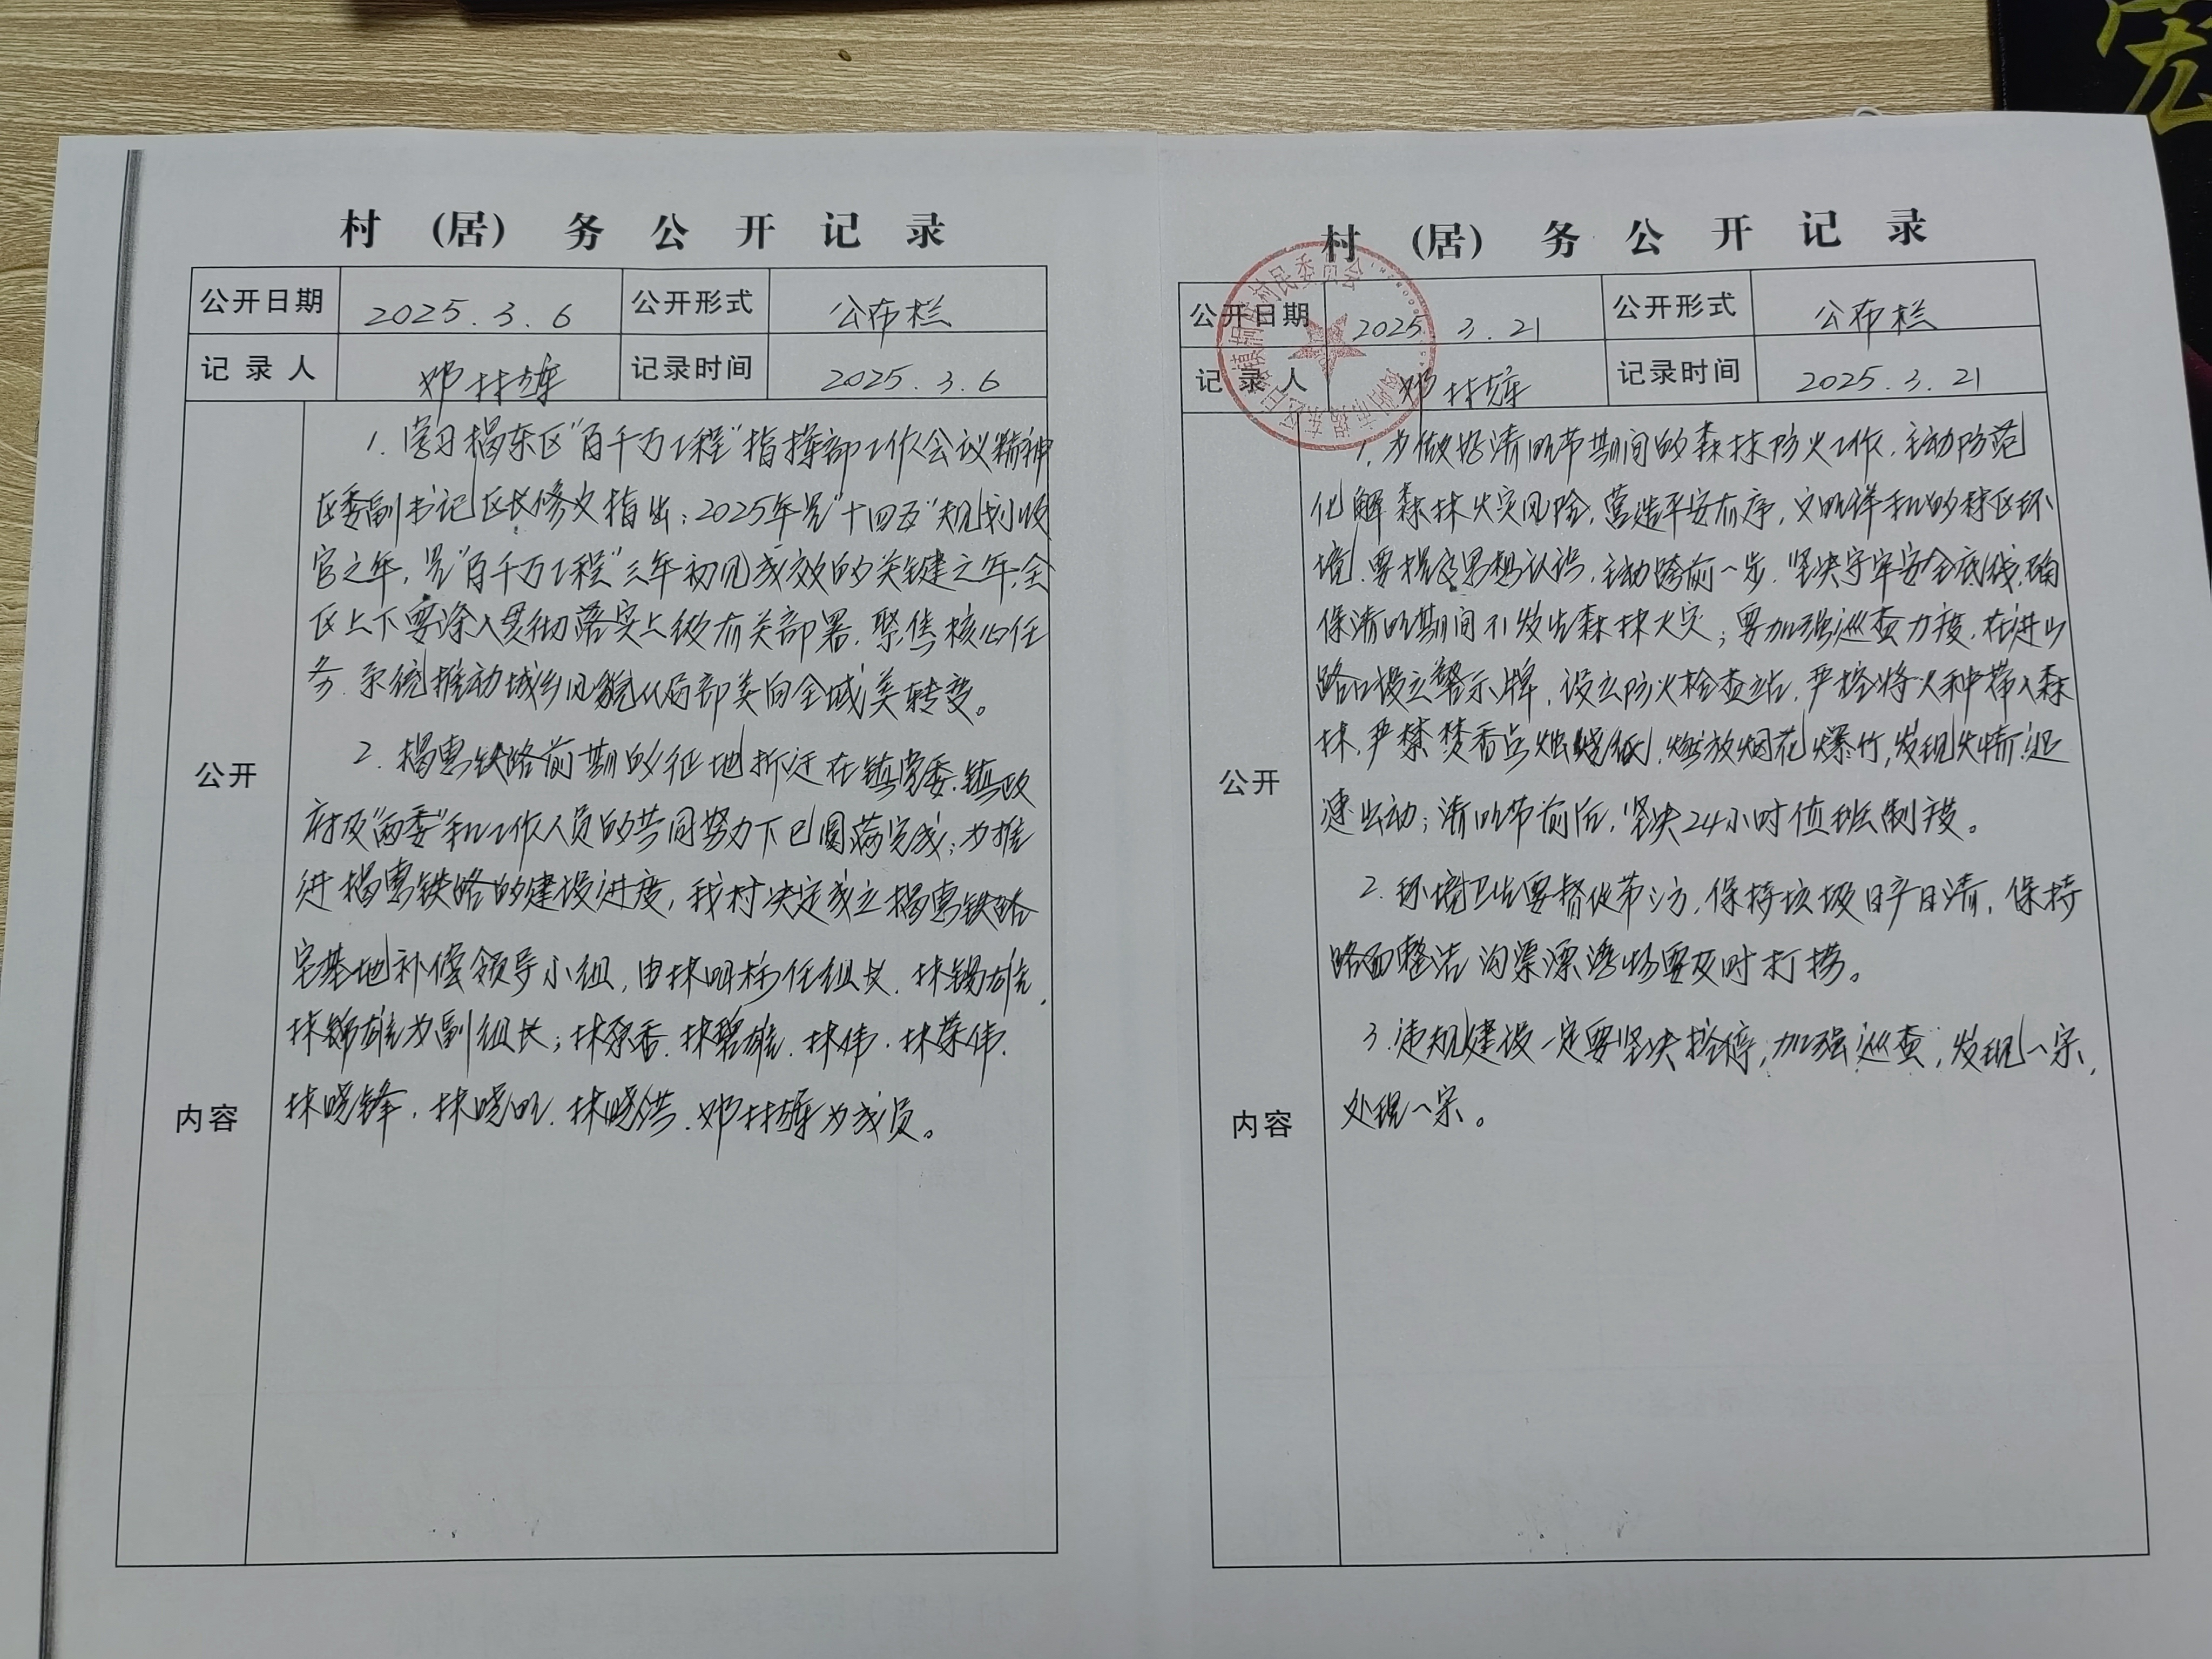 宏
村 (居) 务 公 开 记 录
公开日期 2025.3.6 公开形式 公布栏
记录人 邓林辉 记录时间 2025.3.6
公开
内容
1. 学习揭东区"百千万工程"指挥部工作会议精神
区委副书记区长修文指出:2025年是"十四五"规划收
官之年,是"百千万工程"三年初见成效的关键之年,全
区上下要深入贯彻落实上级有关部署,聚焦核心任
务,系统推动城乡风貌从局部美向全域美转变。
2. 揭惠铁路前期的征地拆迁在镇党委、镇政
府及"两委"和工作人员的共同努力下已圆满完成;为推
进揭惠铁路的建设进度,我村决定成立揭惠铁路
宅基地补偿领导小组,由林明 任组长、林锡雄、
林锦雄为副组长;林 香、林碧雄、林伟、林荣伟、
林晓锋、林晓明、林晓 、邓林辉为成员。
村 (居) 务 公 开 记 录
公开日期 2025.3.21 公开形式 公布栏
记录人 邓林辉 记录时间 2025.3.21
公开
内容
1. 为做好清明节期间的森林防火工作,主动防范
化解森林火灾风险,营造平安有序,文明祥和的林区环
境,要提高思想认识,主动跨前一步,坚决守牢安全底线,确
保清明期间不发生森林火灾;要加强巡查力度,在进山
路口设立警示牌,设立防火检查站,严控将火种带入森
林,严禁焚香点烛烧纸,燃放烟花爆竹,发现火情迅
速出动;清明节前后,坚决24小时值班制度。
2. 环境卫生要督促第三方,保持垃圾日产日清,保持
路面整洁沟渠漂浮物要及时打捞。
3. 违规建设一定要坚决抢停,加强巡查,发现一宗,
处理一宗。